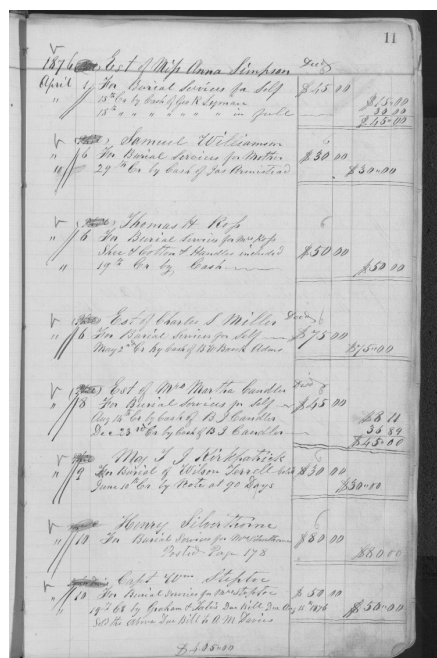 11
1876 Est of Miss Anna Simpson Decd
April 1 For Burial Services for Self $45 00
" 15th Cr by Cash of Geo R Lyman $15-00
15th " " " " " " in full 30 00
$45-00
Samuel Williamson
" 6 For Burial Services for Mother $30 00
" 29th Cr by Cash of Jas Armistead $30-00
Thomas H. Ross 6
" 6 For Burial Services for Mrs Ross
Shee & Cotton & Handles included $50 00
" 19th Cr by Cash $50.00
Est of Charles S Miller Decd 6
" 6 For Burial Services for Self $75 00
May 2nd Cr by Cash of Adms $75-00
Est of Mrs Martha Candler Died 8
" 8 For Burial Services for Self $45 00
Aug 15th Cr by Cash of B J Candler $8 11
Dec 23rd Cr by Cash of B J Candler 36 89
$45-00
Maj T J Kirkpatrick 6
" 9 For Burial of Wilson Terrell $30 00
June 10th Cr by Note at 90 Days $30-00
Henry Silverthorne 6
" 10 For Burial Services for Mrs Silverthorne $80 00
Posted Page 178 $80 00
Capt Wm Steptoe
" 10 For Burial Services for Mrs Steptoe $50 00
19th Cr by Graham & Due Bill Due Aug 15th 1876 $50-00
Sold the above Due Bill to A. M. Davies
$405-00